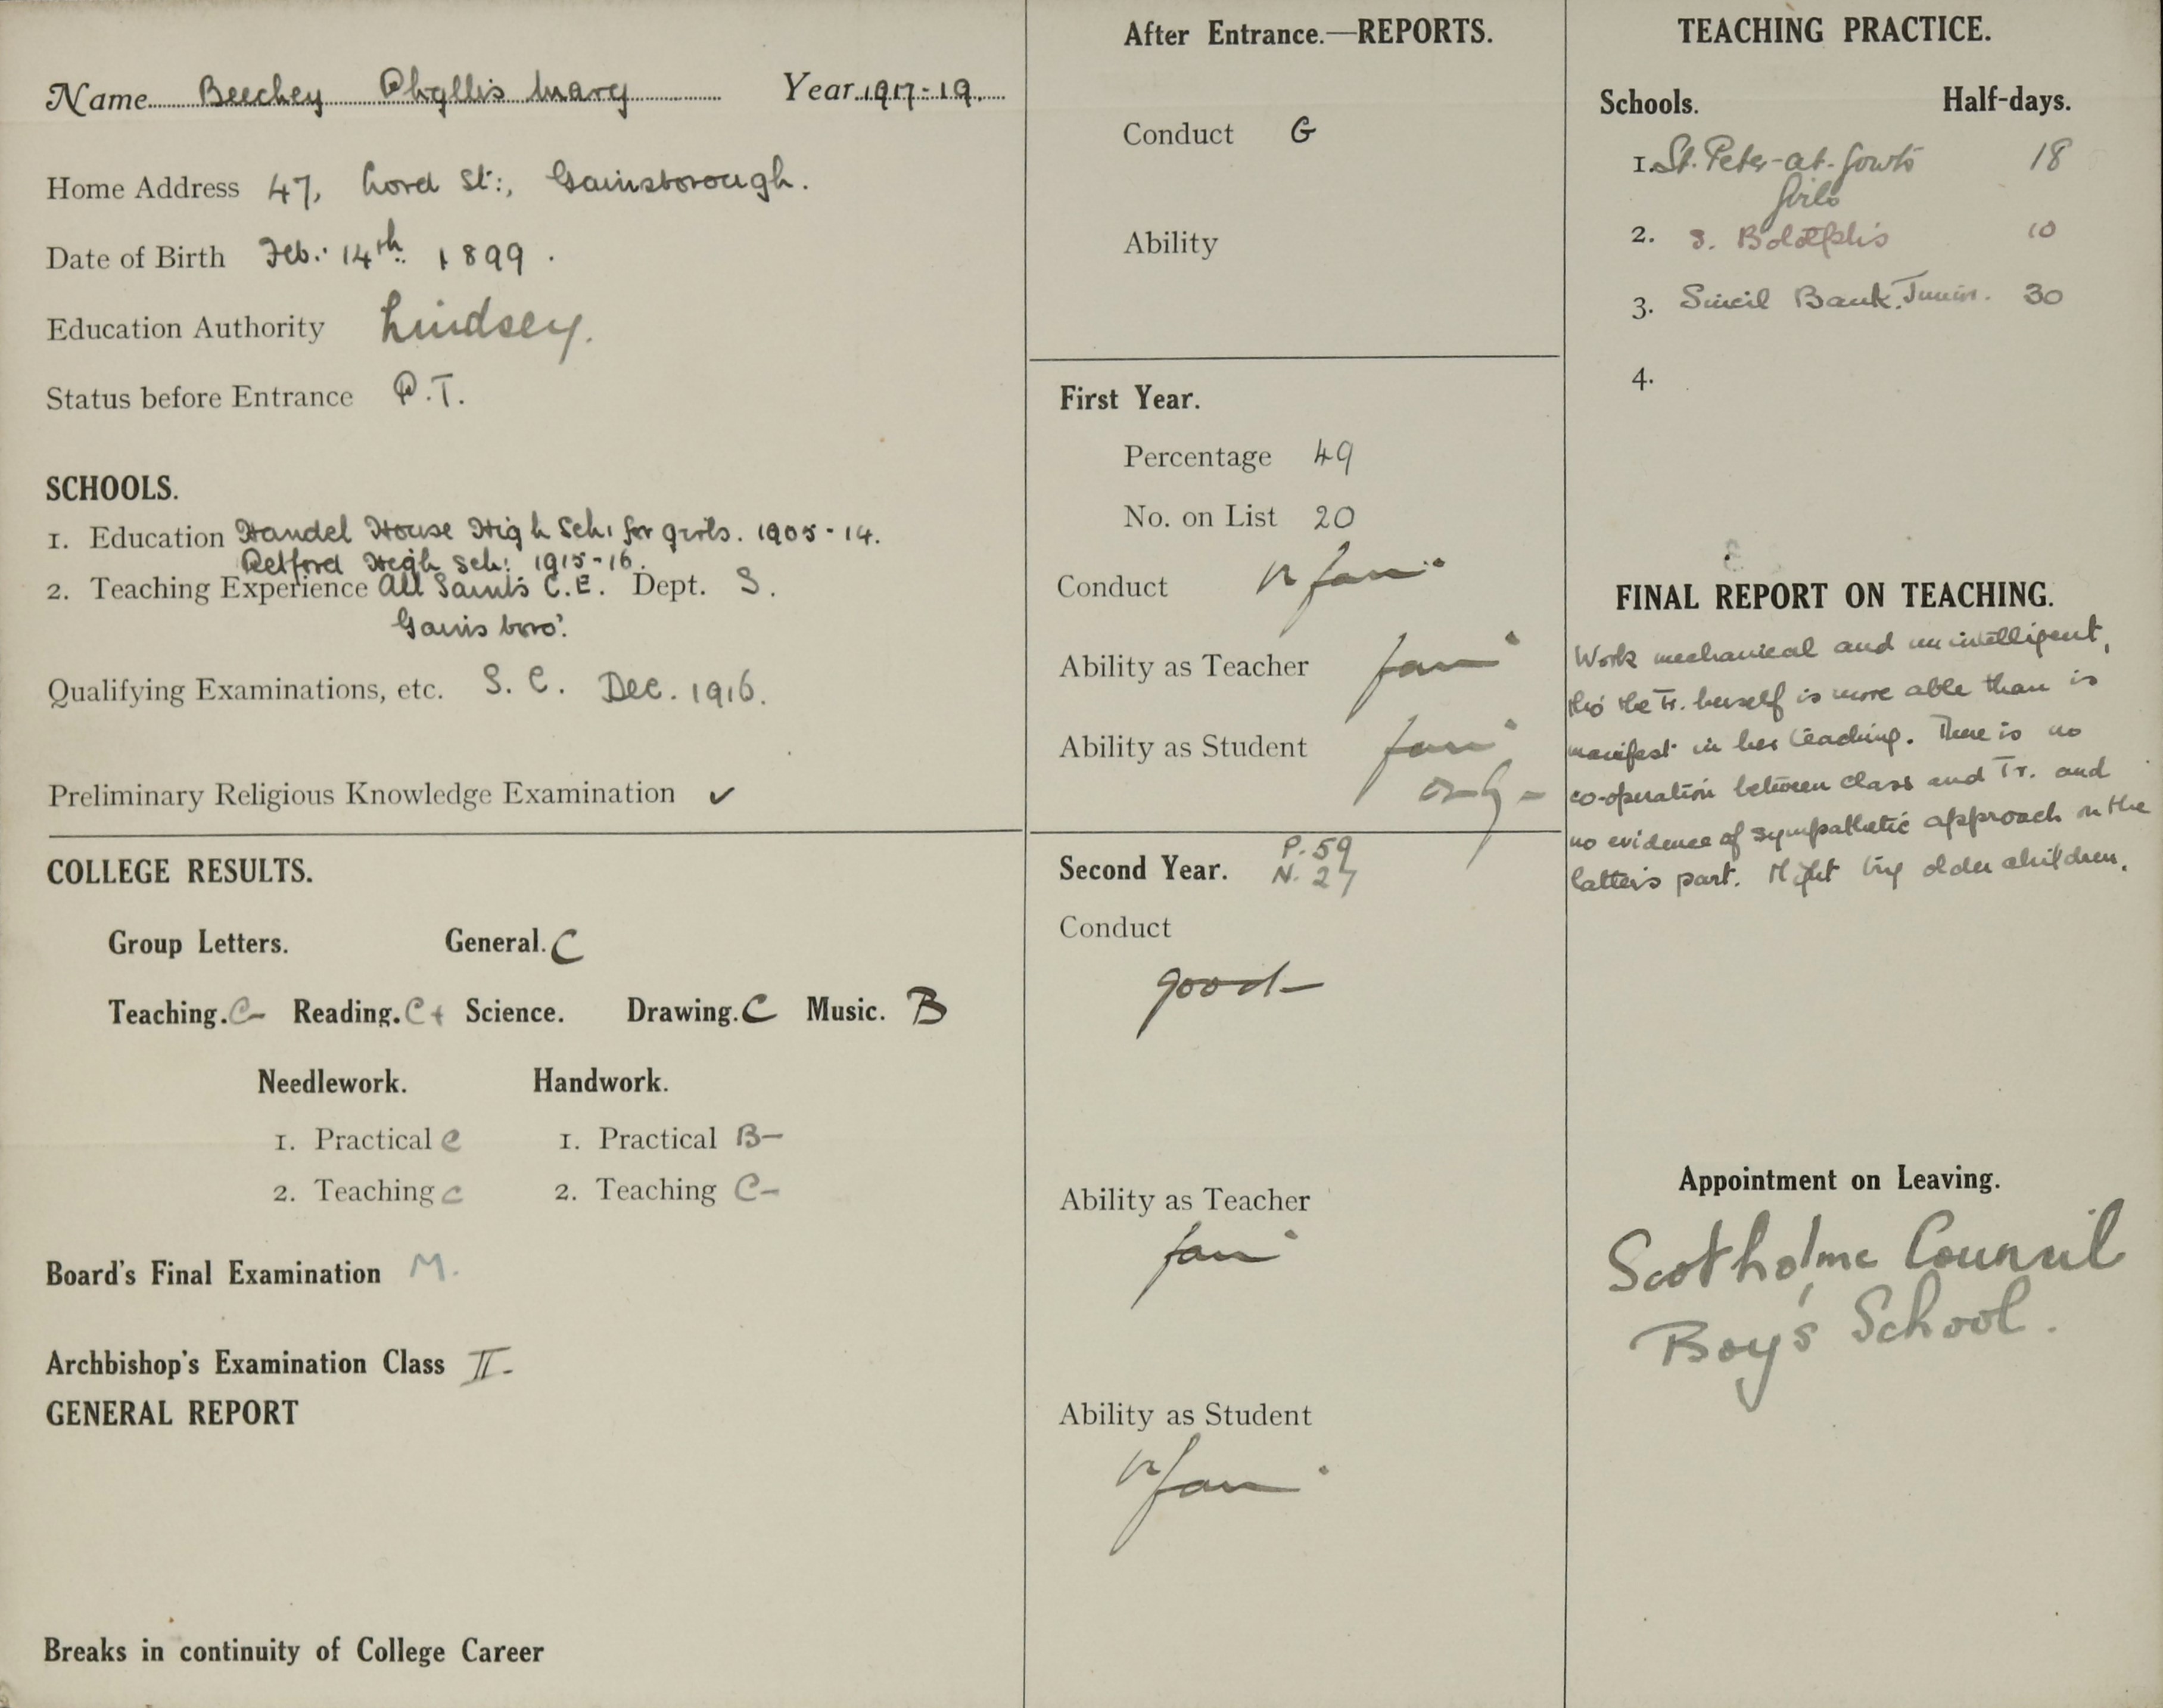 Name Beechey Phyllis Mary Year 1917-19.
Home Address 47, Lord St:, Gainsborough.
Date of Birth Feb: 14th 1899.
Education Authority Lindsey.
Status before Entrance P.T.
SCHOOLS.
1. Education Handel House High Sch: for girls. 1905-14.
Retford High Sch: 1915-16.
2. Teaching Experience All Saints C.E. Dept. S.
Gainsboro'.
Qualifying Examinations, etc. S. C. Dec. 1916.
Preliminary Religious Knowledge Examination ✓
COLLEGE RESULTS.
Group Letters. General. C
Teaching. C- Reading. C+ Science. Drawing. C Music. B
Needlework. Handwork.
1. Practical C 1. Practical B-
2. Teaching C 2. Teaching C-
Board's Final Examination M.
Archbishop's Examination Class II.
GENERAL REPORT
Breaks in continuity of College Career
After Entrance.—REPORTS.
Conduct G
Ability
First Year.
Percentage 49
No. on List 20
Conduct v fair
Ability as Teacher fair
Ability as Student fair
only -
Second Year. P. 59
N. 27
Conduct
good
Ability as Teacher
fair
Ability as Student
v fair
TEACHING PRACTICE.
Schools. Half-days.
1. St. Peter-at-Gowts 18
Girls
2. S. Botolph's 10
3. Sincil Bank Junior. 30
4.
FINAL REPORT ON TEACHING.
Work mechanical and unintelligent,
tho' the Tr. herself is more able than is
manifest in her teaching. There is no
co-operation between class and Tr. and
no evidence of sympathetic approach on the
latter's part. Might try older children.
Appointment on Leaving.
Scotholme Council
Boy's School.